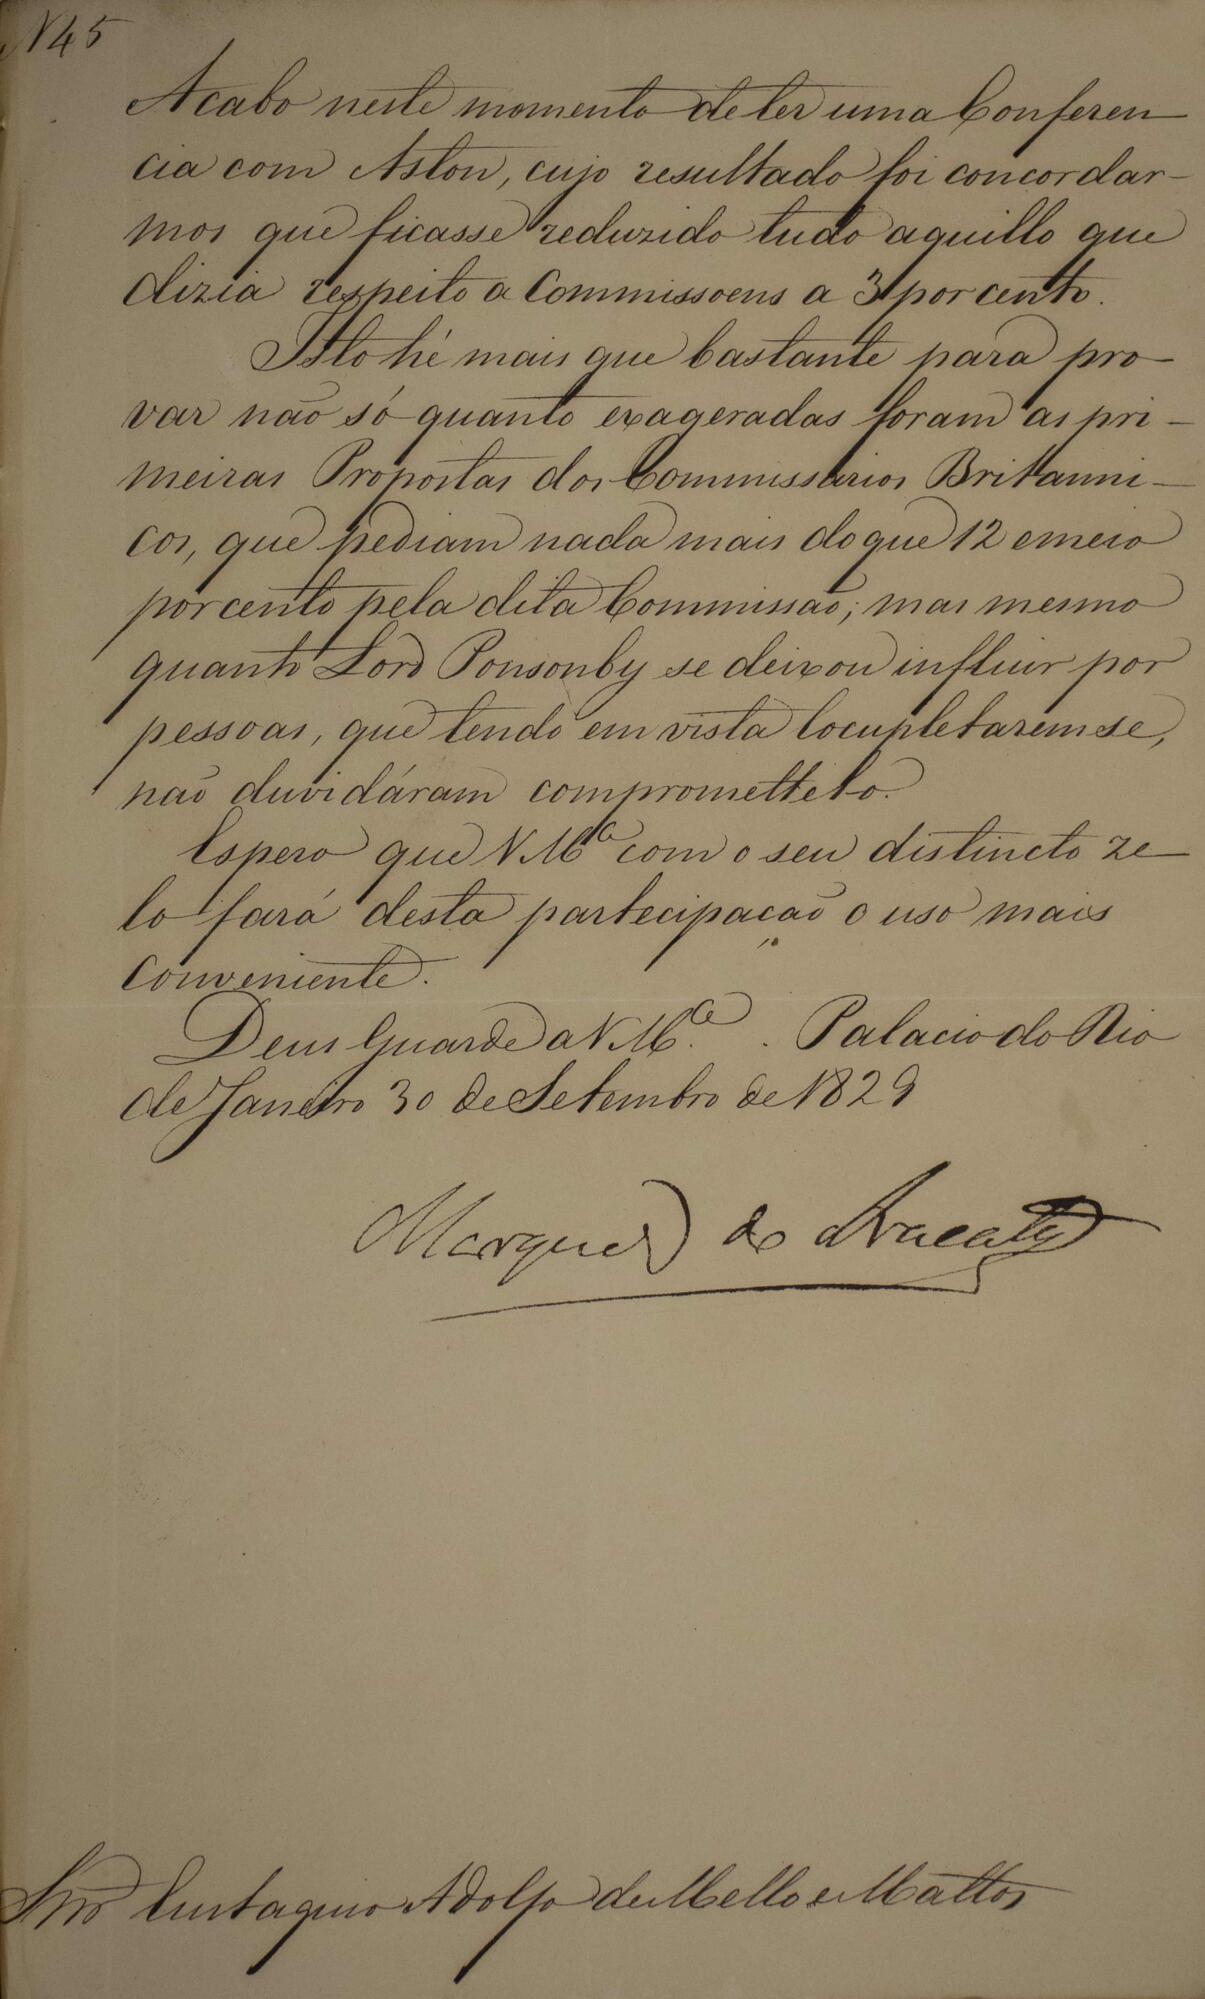 N 45
Acabo neste momento de ter uma Conferen
cia com Aston, cujo resultado foi concordar-
mos que ficasse reduzido tudo aquillo que
dizia respeito a Commissoens a 3 por cento.
Isto hé mais que bastante para pro-
var não só quanto exageradas foram as pri-
meiras Propostas dos Commissarios Britanni-
cos, que pediam nada mais do que 12 e meio
por cento pela dita Commissão; mas mesmo
quanto Lord Ponsonby se deixou influir por
pessoas, que tendo em vista locupletarem se,
não duvidáram comprometteló.
Espero que V M.ce com o seu distincto ze-
lo fará desta partecipação o uso mais
conveniente.
Deus Guarde a V M.ce. Palacio do Rio
de Janeiro 30 de Setembro de 1829
Marquez de Aracaty
Snr Eustaquio Adolfo de Mello e Mattos